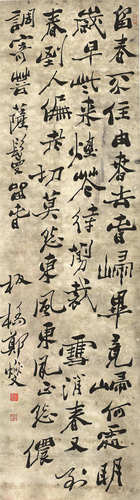 留春不住由春去春歸畢竟歸何處明
歲早些來煙花待剪裁 雪消春又到
春到人偏老切莫怨東風東風正怨儂
調寄菩薩鬘留春
板橋鄭燮